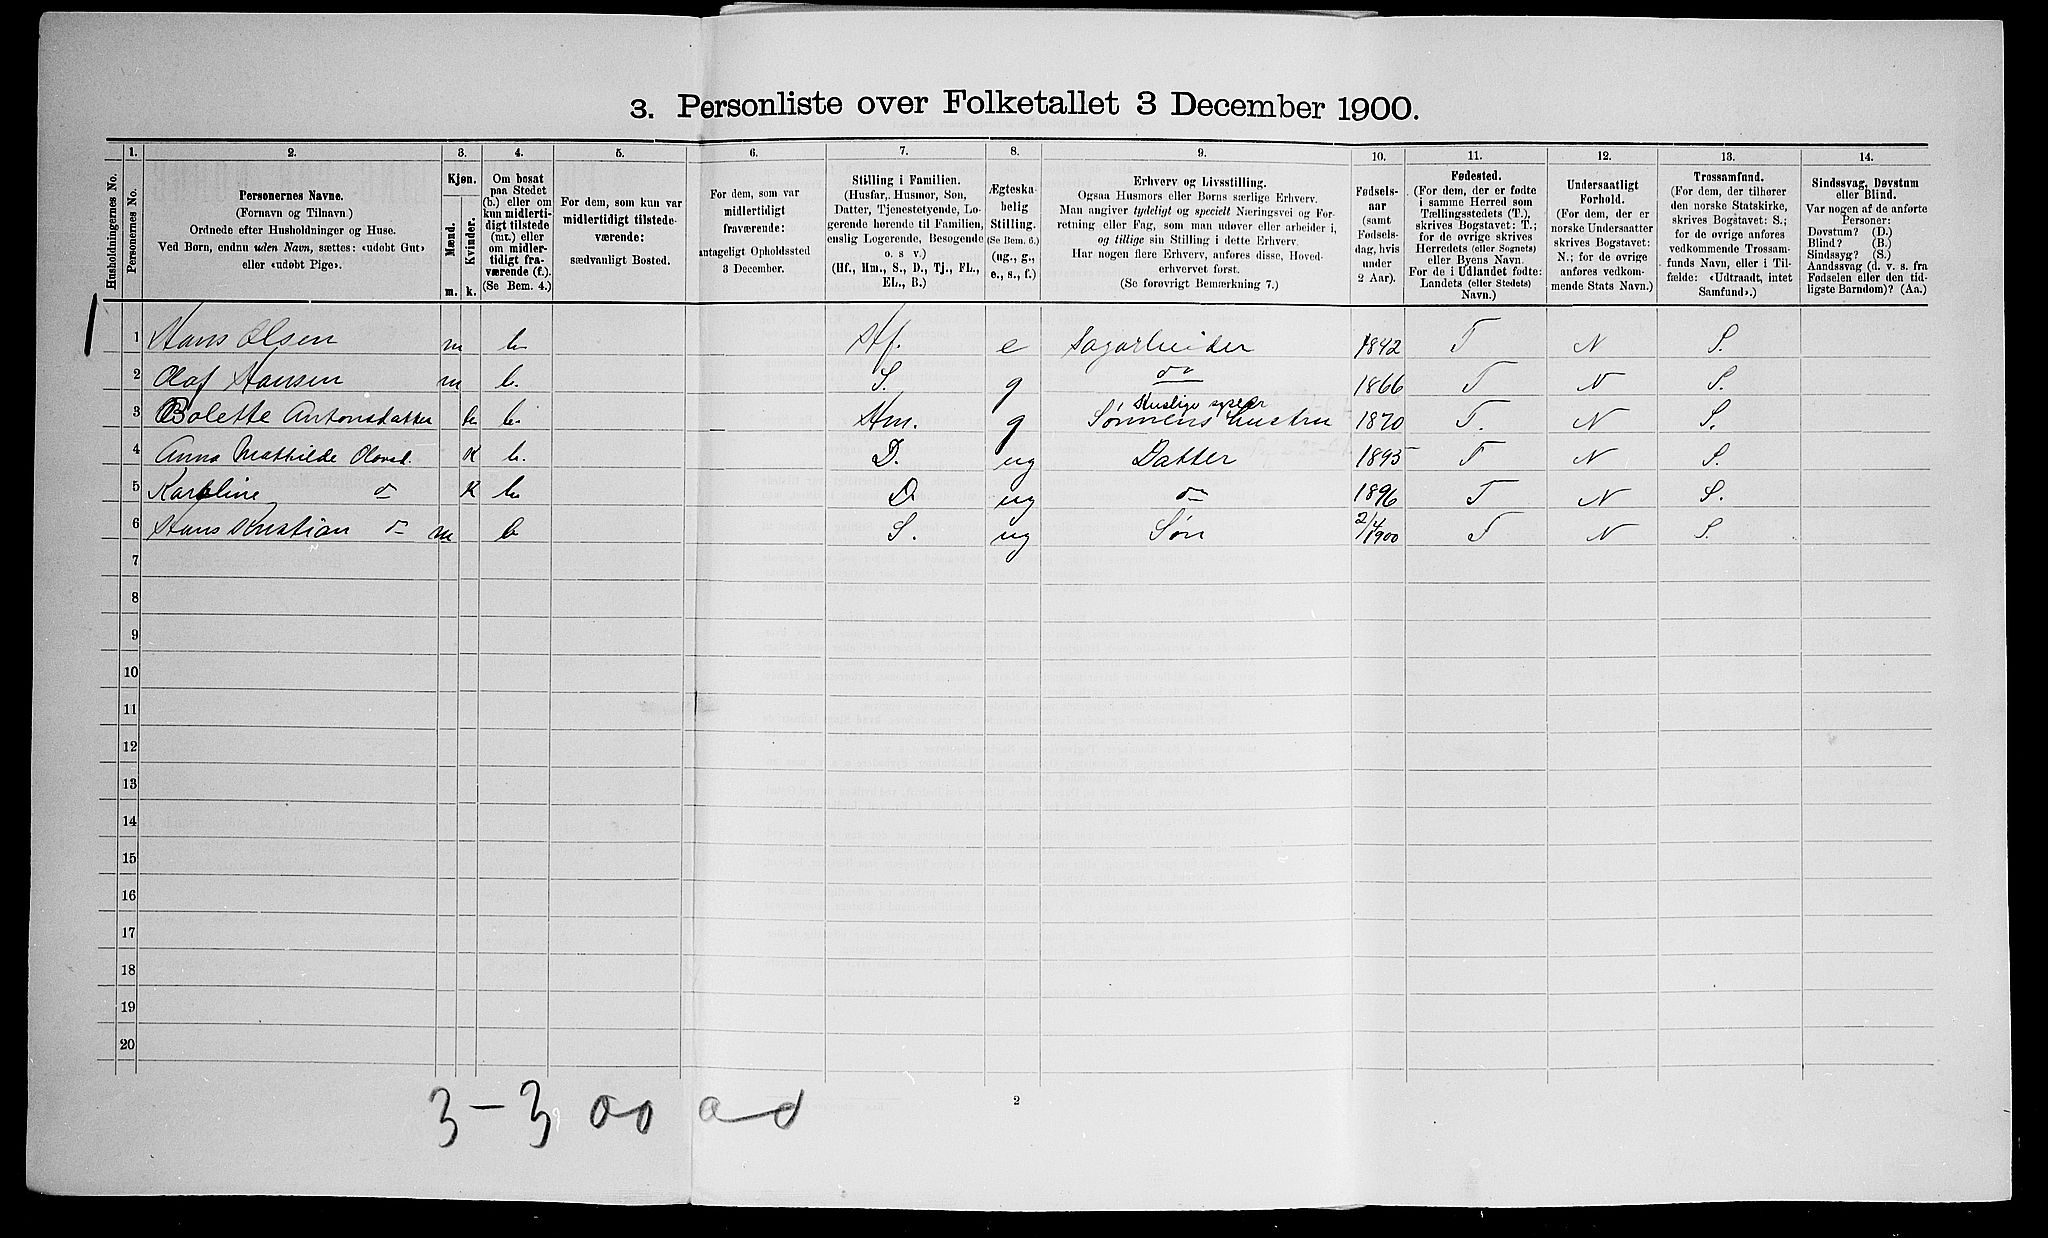 3. Personliste over Folketallet 3 December 1900.
Husholdningernes No.
1.
Personernes No.
2.
Personernes Navne.
(Fornavn og Tilnavn.)
Ordnede efter Husholdninger og Huse.
Ved Børn, endnu uden Navn, sættes: «udøbt Gut»
eller «udøbt Pige».
3.
Kjøn.
Mænd.
Kvinder.
m. k.
4.
Om bosat
paa Stedet
(b.) eller om
kun midlerti-
digt tilstede
(mt.) eller
om midler-
tidigt fra-
værende (f.).
(Se Bem. 4.)
5.
For dem, som kun var
midlertidigt tilstede-
værende:
sædvanligt Bosted.
6.
For dem, som var
midlertidigt
fraværende:
antageligt Opholdssted
3 December.
7.
Stilling i Familien.
(Husfar, Husmor, Søn,
Datter, Tjenestetyende, Lo-
gerende hørende til Familien,
enslig Logerende, Besøgende
o. s v.)
(Hf., Hm., S., D., Tj., FL.,
EL., B.)
8.
Ægteska-
belig
Stilling.
(Se Bem. 6.)
(ug., g.,
e., s., f.)
9.
Erhverv og Livsstilling.
Ogsaa Husmors eller Børns særlige Erhverv.
Man angiver tydeligt og specielt Næringsvei og For-
retning eller Fag, som man udøver eller arbeider i,
og tillige sin Stilling i dette Erhverv.
Har nogen flere Erhverv, anføres disse, Hoved-
erhvervet først.
(Se forøvrigt Bemærkning 7.)
10.
Fødsels-
aar
(samt
Fødsels-
dag, hvis
under
2 Aar).
11.
Fødested.
(For dem, der er fødte
i samme Herred som
Tællingsstedets (T.),
skrives Bogstavet: T.;
for de øvrige skrives
Herredets (eller Sognets)
eller Byens Navn.
For de i Udlandet fødte:
Landets (eller Stedets)
Navn.)
12.
Undersaatligt
Forhold.
(For dem, der er
norske Undersaatter
skrives Bogstavet:
N.; for de øvrige
anføres vedkom-
mende Stats Navn.)
13.
Trossamfund.
(For dem, der tilhører
den norske Statskirke,
skrives Bogstavet: S.;
for de øvrige anføres
vedkommende Trossam-
funds Navn, eller i Til-
fælde: «Udtraadt, intet
Samfund».)
14.
Sindssvag, Døvstum
eller Blind.
Var nogen af de anførte
Personer:
Døvstum? (D.)
Blind? (B.)
Sindssyg? (S.)
Aandssvag (d. v. s. fra
Fødselen eller den tid-
ligste Barndom)? (Aa.)
1 Hans Olsen m b. Hf. e Sagarbeider 1842 T N S.
2 Olaf Hansen m b. S. g do 1866 T N S.
3 Bolette Antonsdatter k b. Hm. g Sønnens Hustru 1870 T. N S.
4 Anna Mathilde Olavsd. K b. D. ug Datter 1895 T N S.
5 Karoline do K b D. ug do 1896 T N S.
6 Hans Kristian do m b S. ug Søn 2/4 1900 T N S.
7
8
9
10
11
12
13
14
15
16
17
18
19
20
3-3 00
2